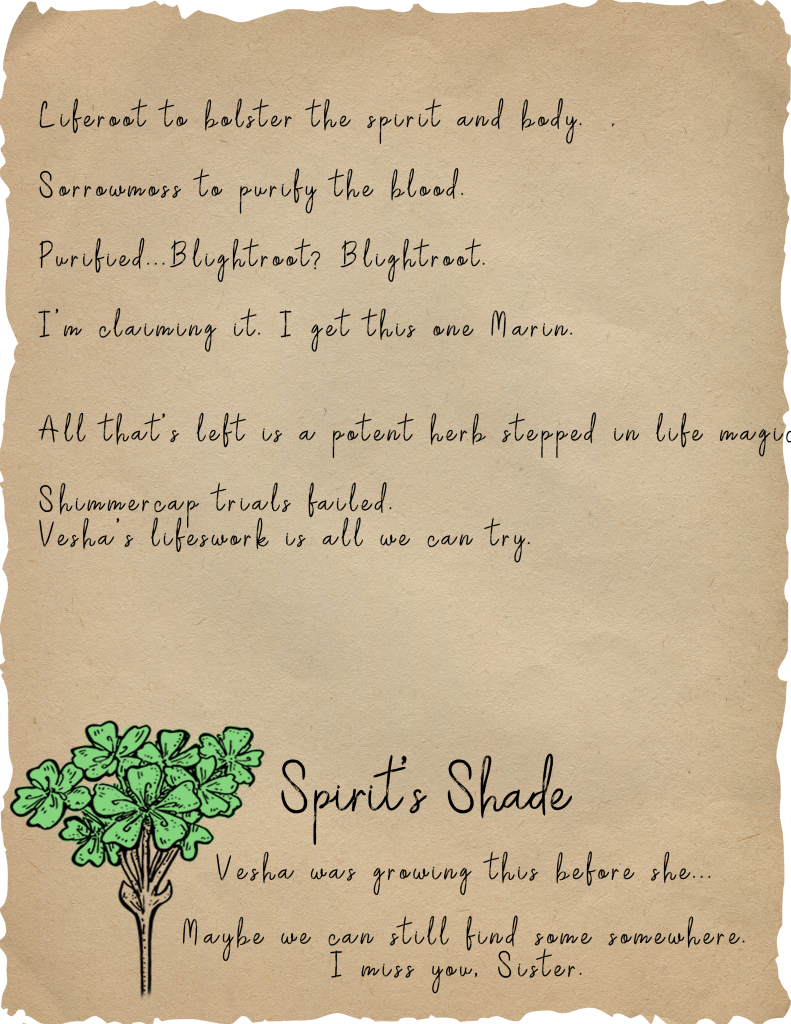 Liferoot to bolster the spirit and body. .
Sorrowmoss to purify the blood.
Purified...Blightroot? Blightroot.
I'm claiming it. I get this one Marin.
All that's left is a potent herb stepped in life magic
Shimmercap trials failed.
Vesha's lifeswork is all we can try.
Spirit's Shade
Vesha was growing this before she...
Maybe we can still find some somewhere.
I miss you, Sister.